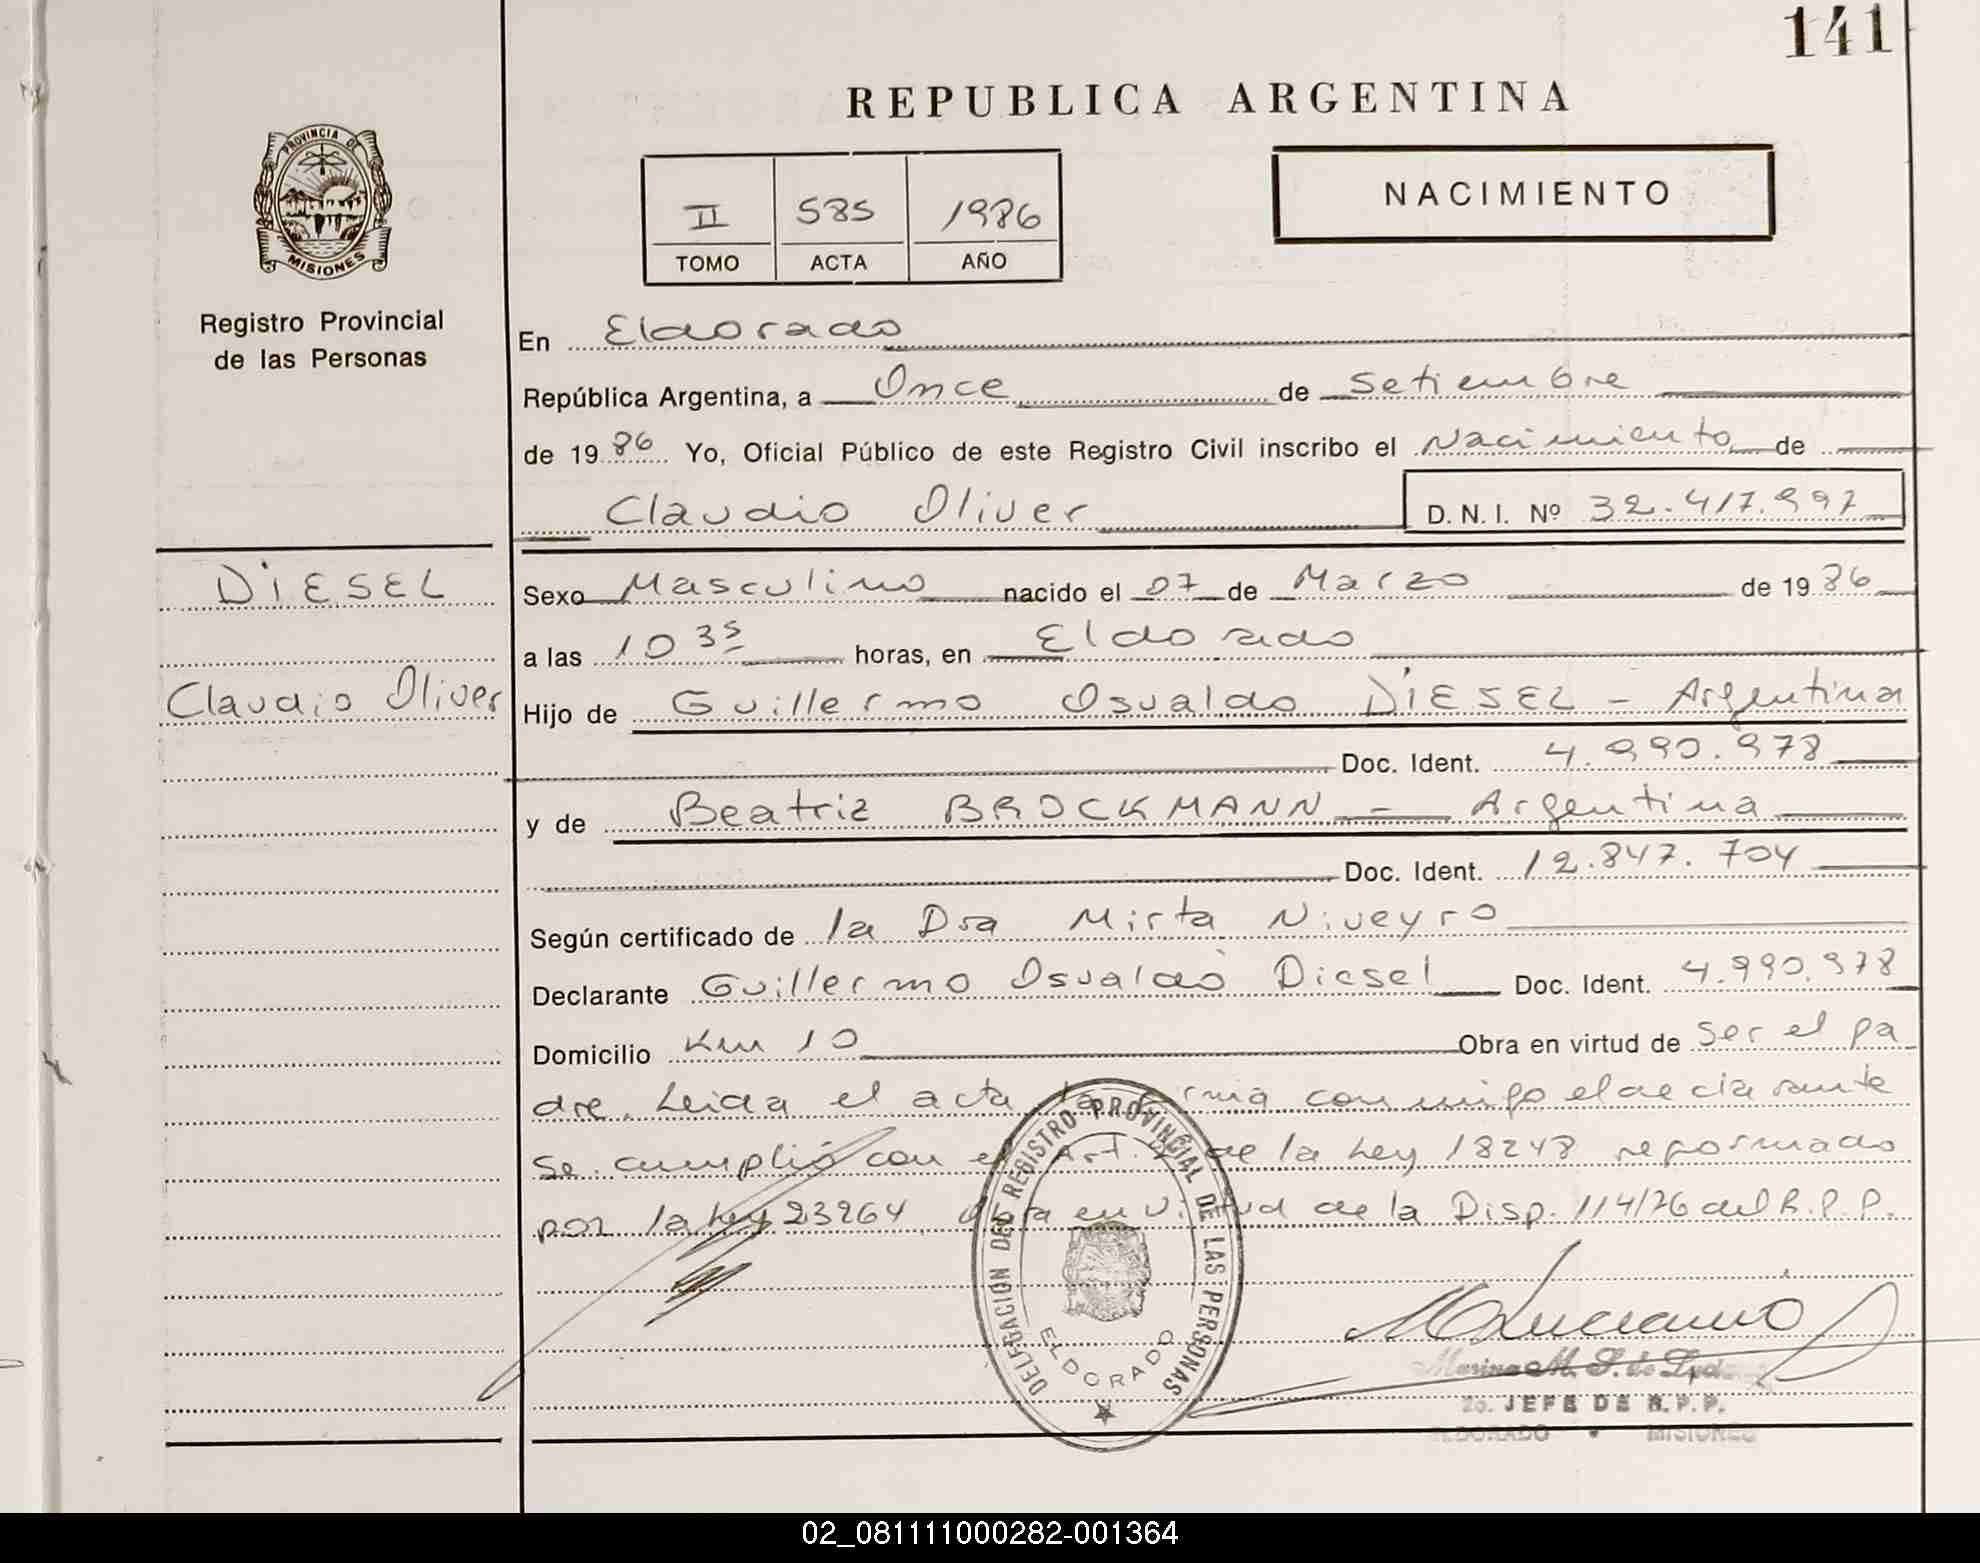 141
REPUBLICA ARGENTINA
PROVINCIA DE
MISIONES
Registro Provincial
de las Personas
II 585 1986
TOMO ACTA AÑO
NACIMIENTO
En Eldorado
República Argentina, a Once de Setiembre
de 1986 Yo, Oficial Público de este Registro Civil inscribo el Nacimiento de
Claudio Oliver D. N. I. Nº 32.417.997
DIESEL
Claudio Oliver
Sexo Masculino nacido el 07 de Marzo de 1986
a las 10 35 horas, en Eldorado
Hijo de Guillermo Osvaldo DIESEL - Argentina
Doc. Ident. 4.990.978
y de Beatriz BROCKMANN - Argentina
Doc. Ident. 12.847.704
Según certificado de la Dra Mirta Niveyro
Declarante Guillermo Osvaldo Diesel Doc. Ident. 4.990.978
Domicilio Km 10 Obra en virtud de ser el pa
dre. Leida el acta la firma conmigo el declarante
se cumplió con el Art. de la Ley 18248 reformado
por la Ley 23264 obra en virtud de la Disp. 114/76 del R.P.P.
DELEGACIÓN DEL REGISTRO PROVINCIAL DE LAS PERSONAS
ELDORADO
2o. JEFE DE R.P.P.
ELDORADO - MISIONES
02_081111000282-001364